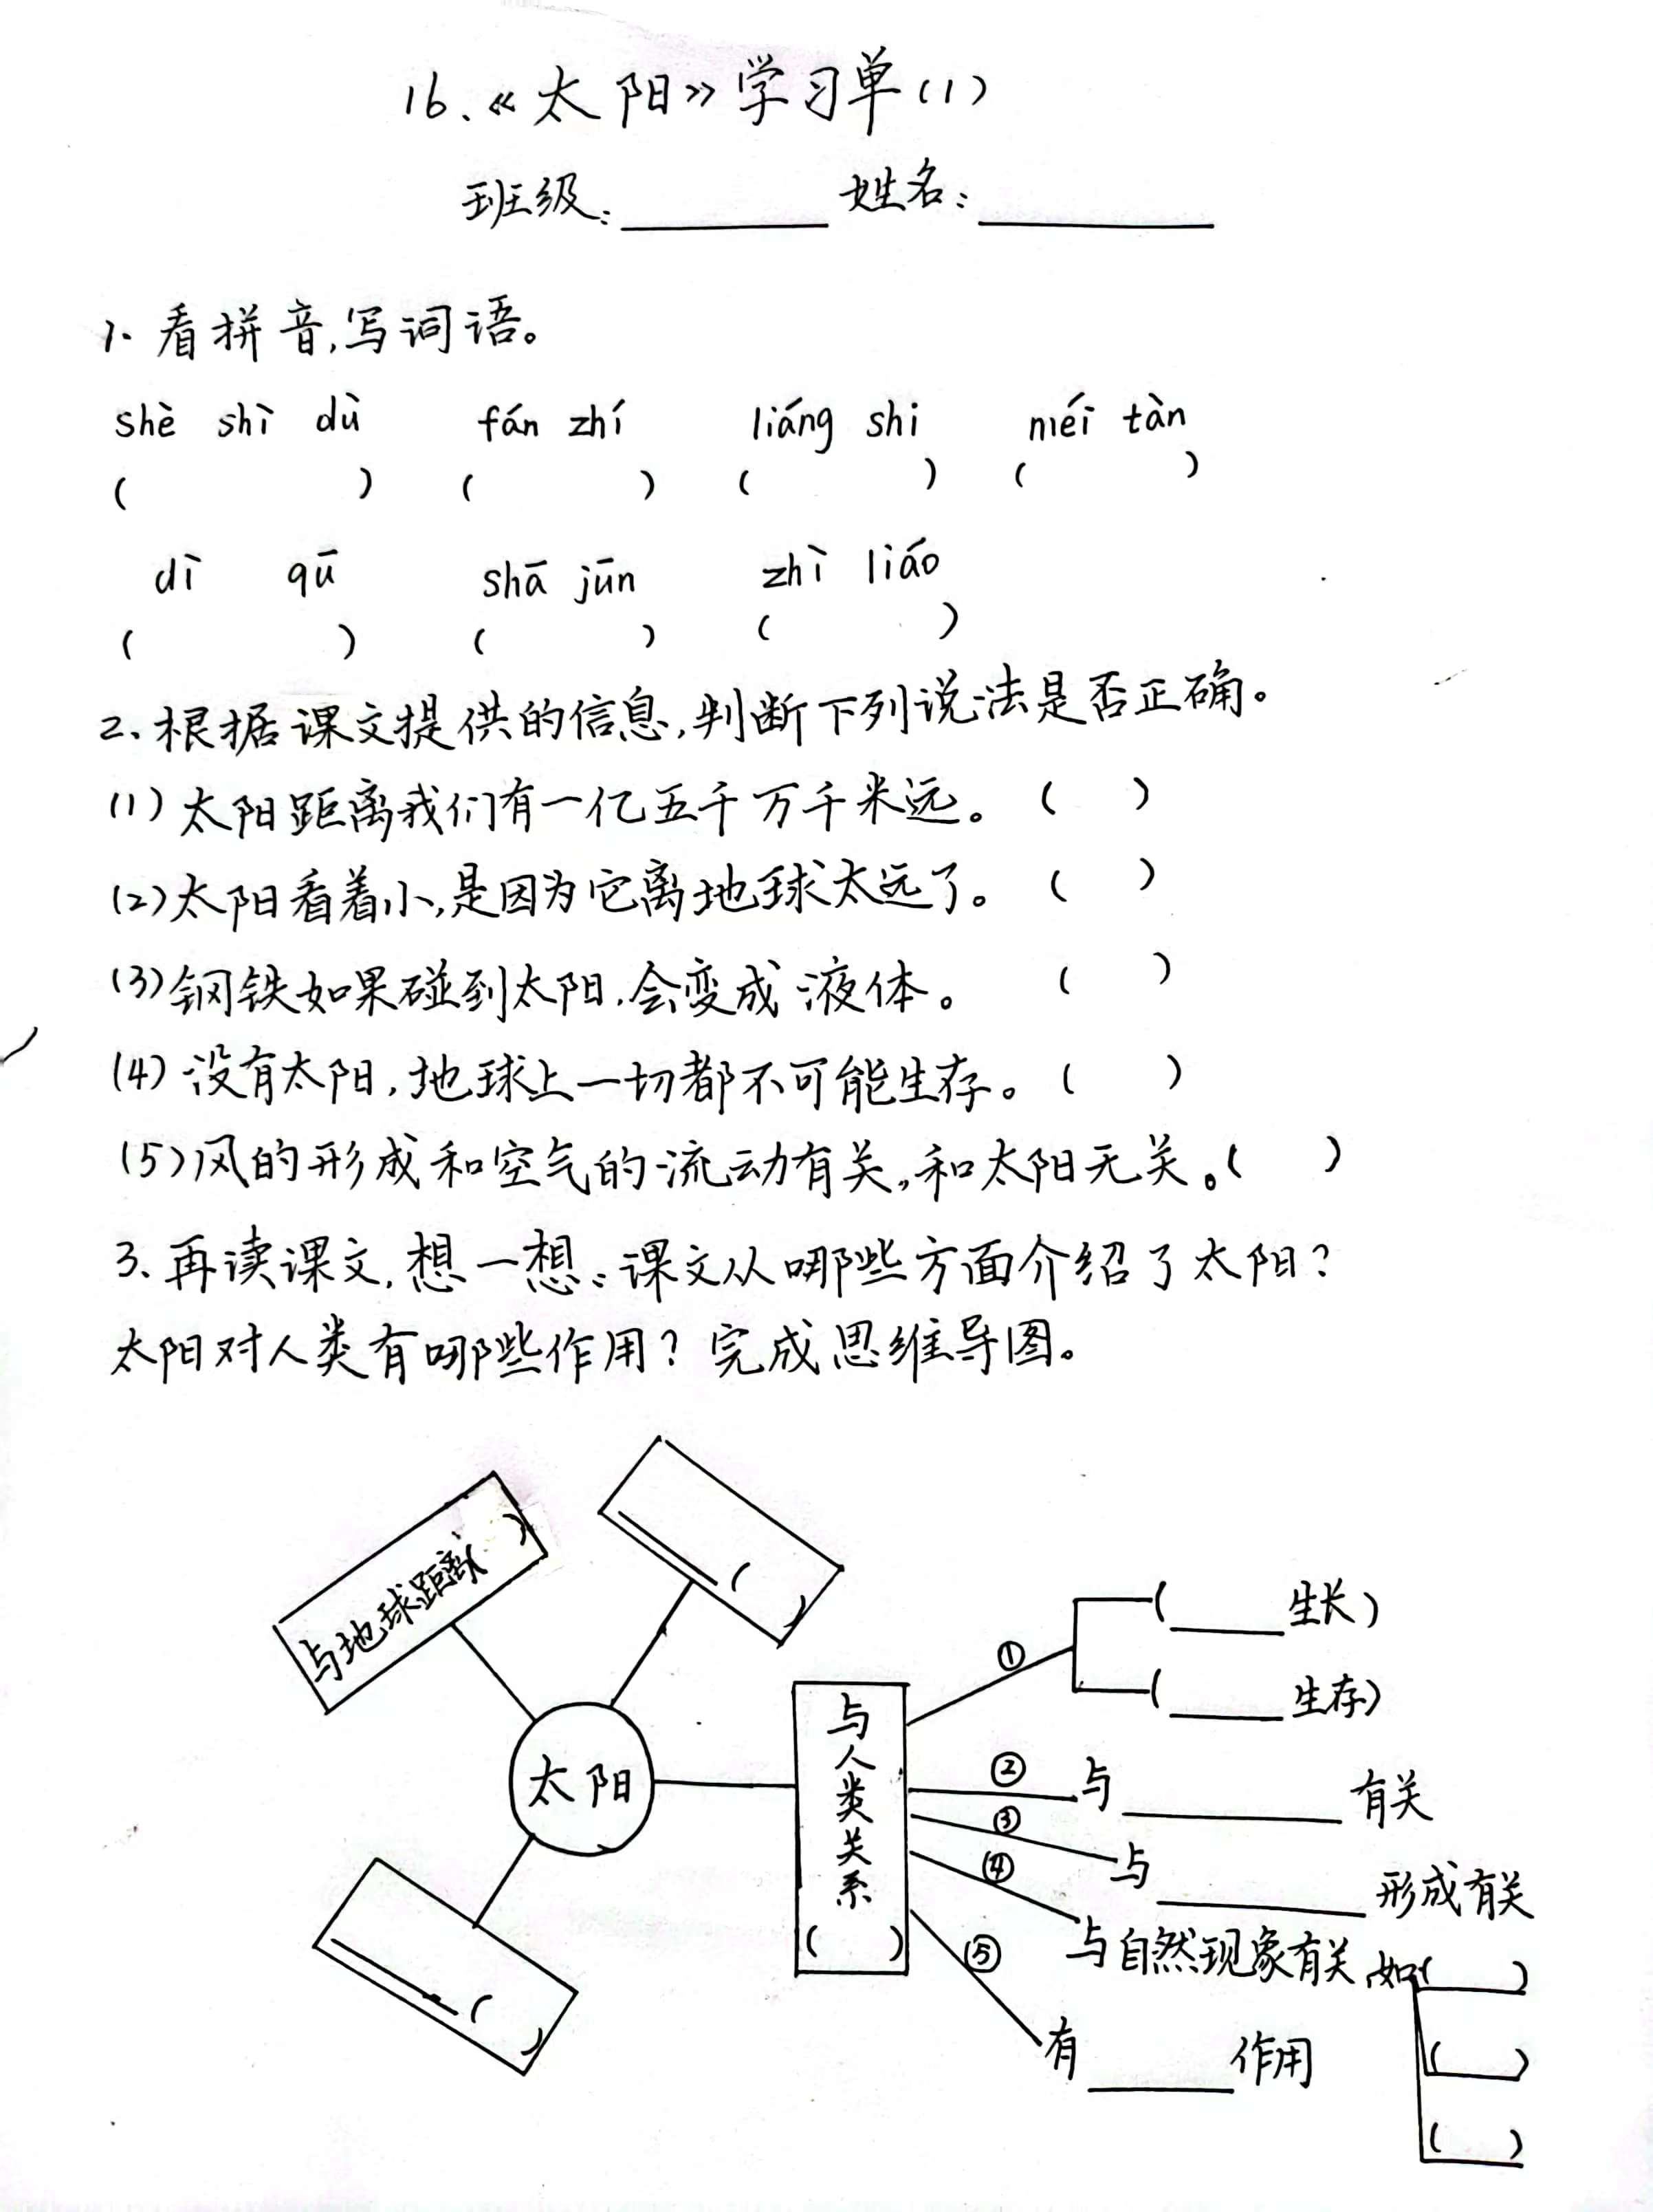 16、《太阳》学习单(1)
班级：________ 姓名：________
1、看拼音,写词语。
shè shì dù fán zhí liáng shi méi tàn
( ) ( ) ( ) ( )
dì qū shā jūn zhì liáo
( ) ( ) ( )
2、根据课文提供的信息,判断下列说法是否正确。
(1)太阳距离我们有一亿五千万千米远。( )
(2)太阳看着小,是因为它离地球太远了。( )
(3)钢铁如果碰到太阳,会变成液体。( )
(4)没有太阳,地球上一切都不可能生存。( )
(5)风的形成和空气的流动有关,和太阳无关。( )
3、再读课文,想一想：课文从哪些方面介绍了太阳?
太阳对人类有哪些作用?完成思维导图。
与地球距离( )
____( )
太阳
____( )
与人类关系( )
①
(____生长)
(____生存)
② 与________有关
③ 与________形成有关
④ 与自然现象有关,如( )
( )
( )
⑤ 有____作用